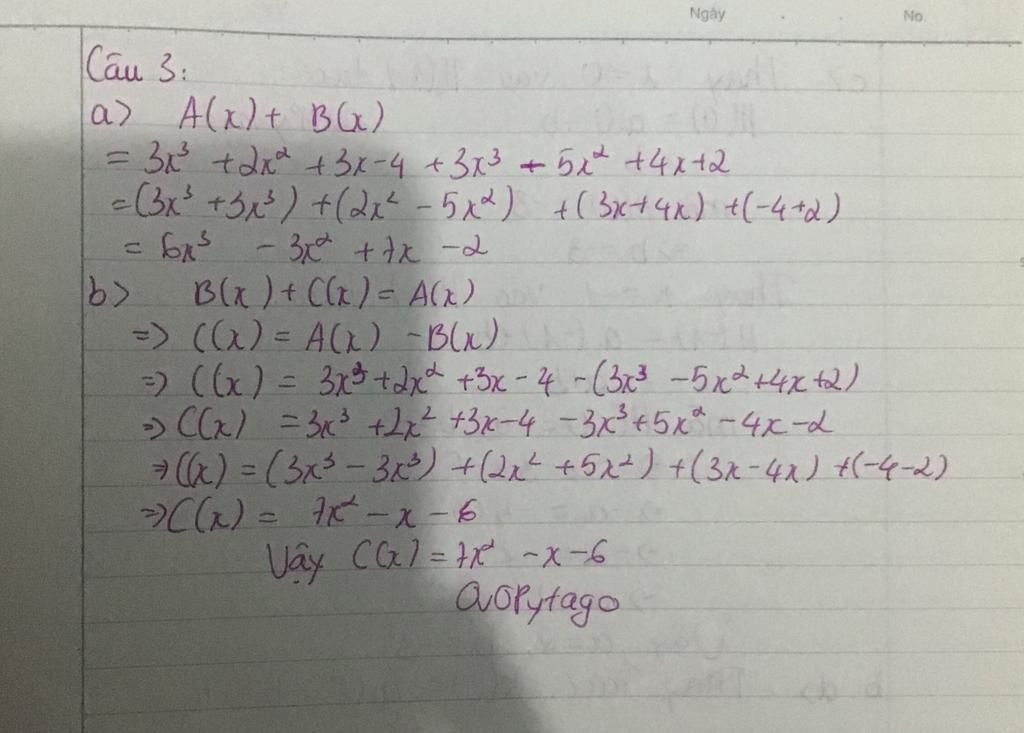 Ngày . . No.
Câu 3:
a> A(x) + B(x)
= 3x³ + 2x² + 3x - 4 + 3x³ - 5x² + 4x + 2
= (3x³ + 3x³) + (2x² - 5x²) + (3x + 4x) + (-4 + 2)
= 6x³ - 3x² + 7x - 2
b> B(x) + C(x) = A(x)
=> C(x) = A(x) - B(x)
=> C(x) = 3x³ + 2x² + 3x - 4 - (3x³ - 5x² + 4x + 2)
=> C(x) = 3x³ + 2x² + 3x - 4 - 3x³ + 5x² - 4x - 2
=> C(x) = (3x³ - 3x³) + (2x² + 5x²) + (3x - 4x) + (-4 - 2)
=> C(x) = 7x² - x - 6
Vậy C(x) = 7x² - x - 6